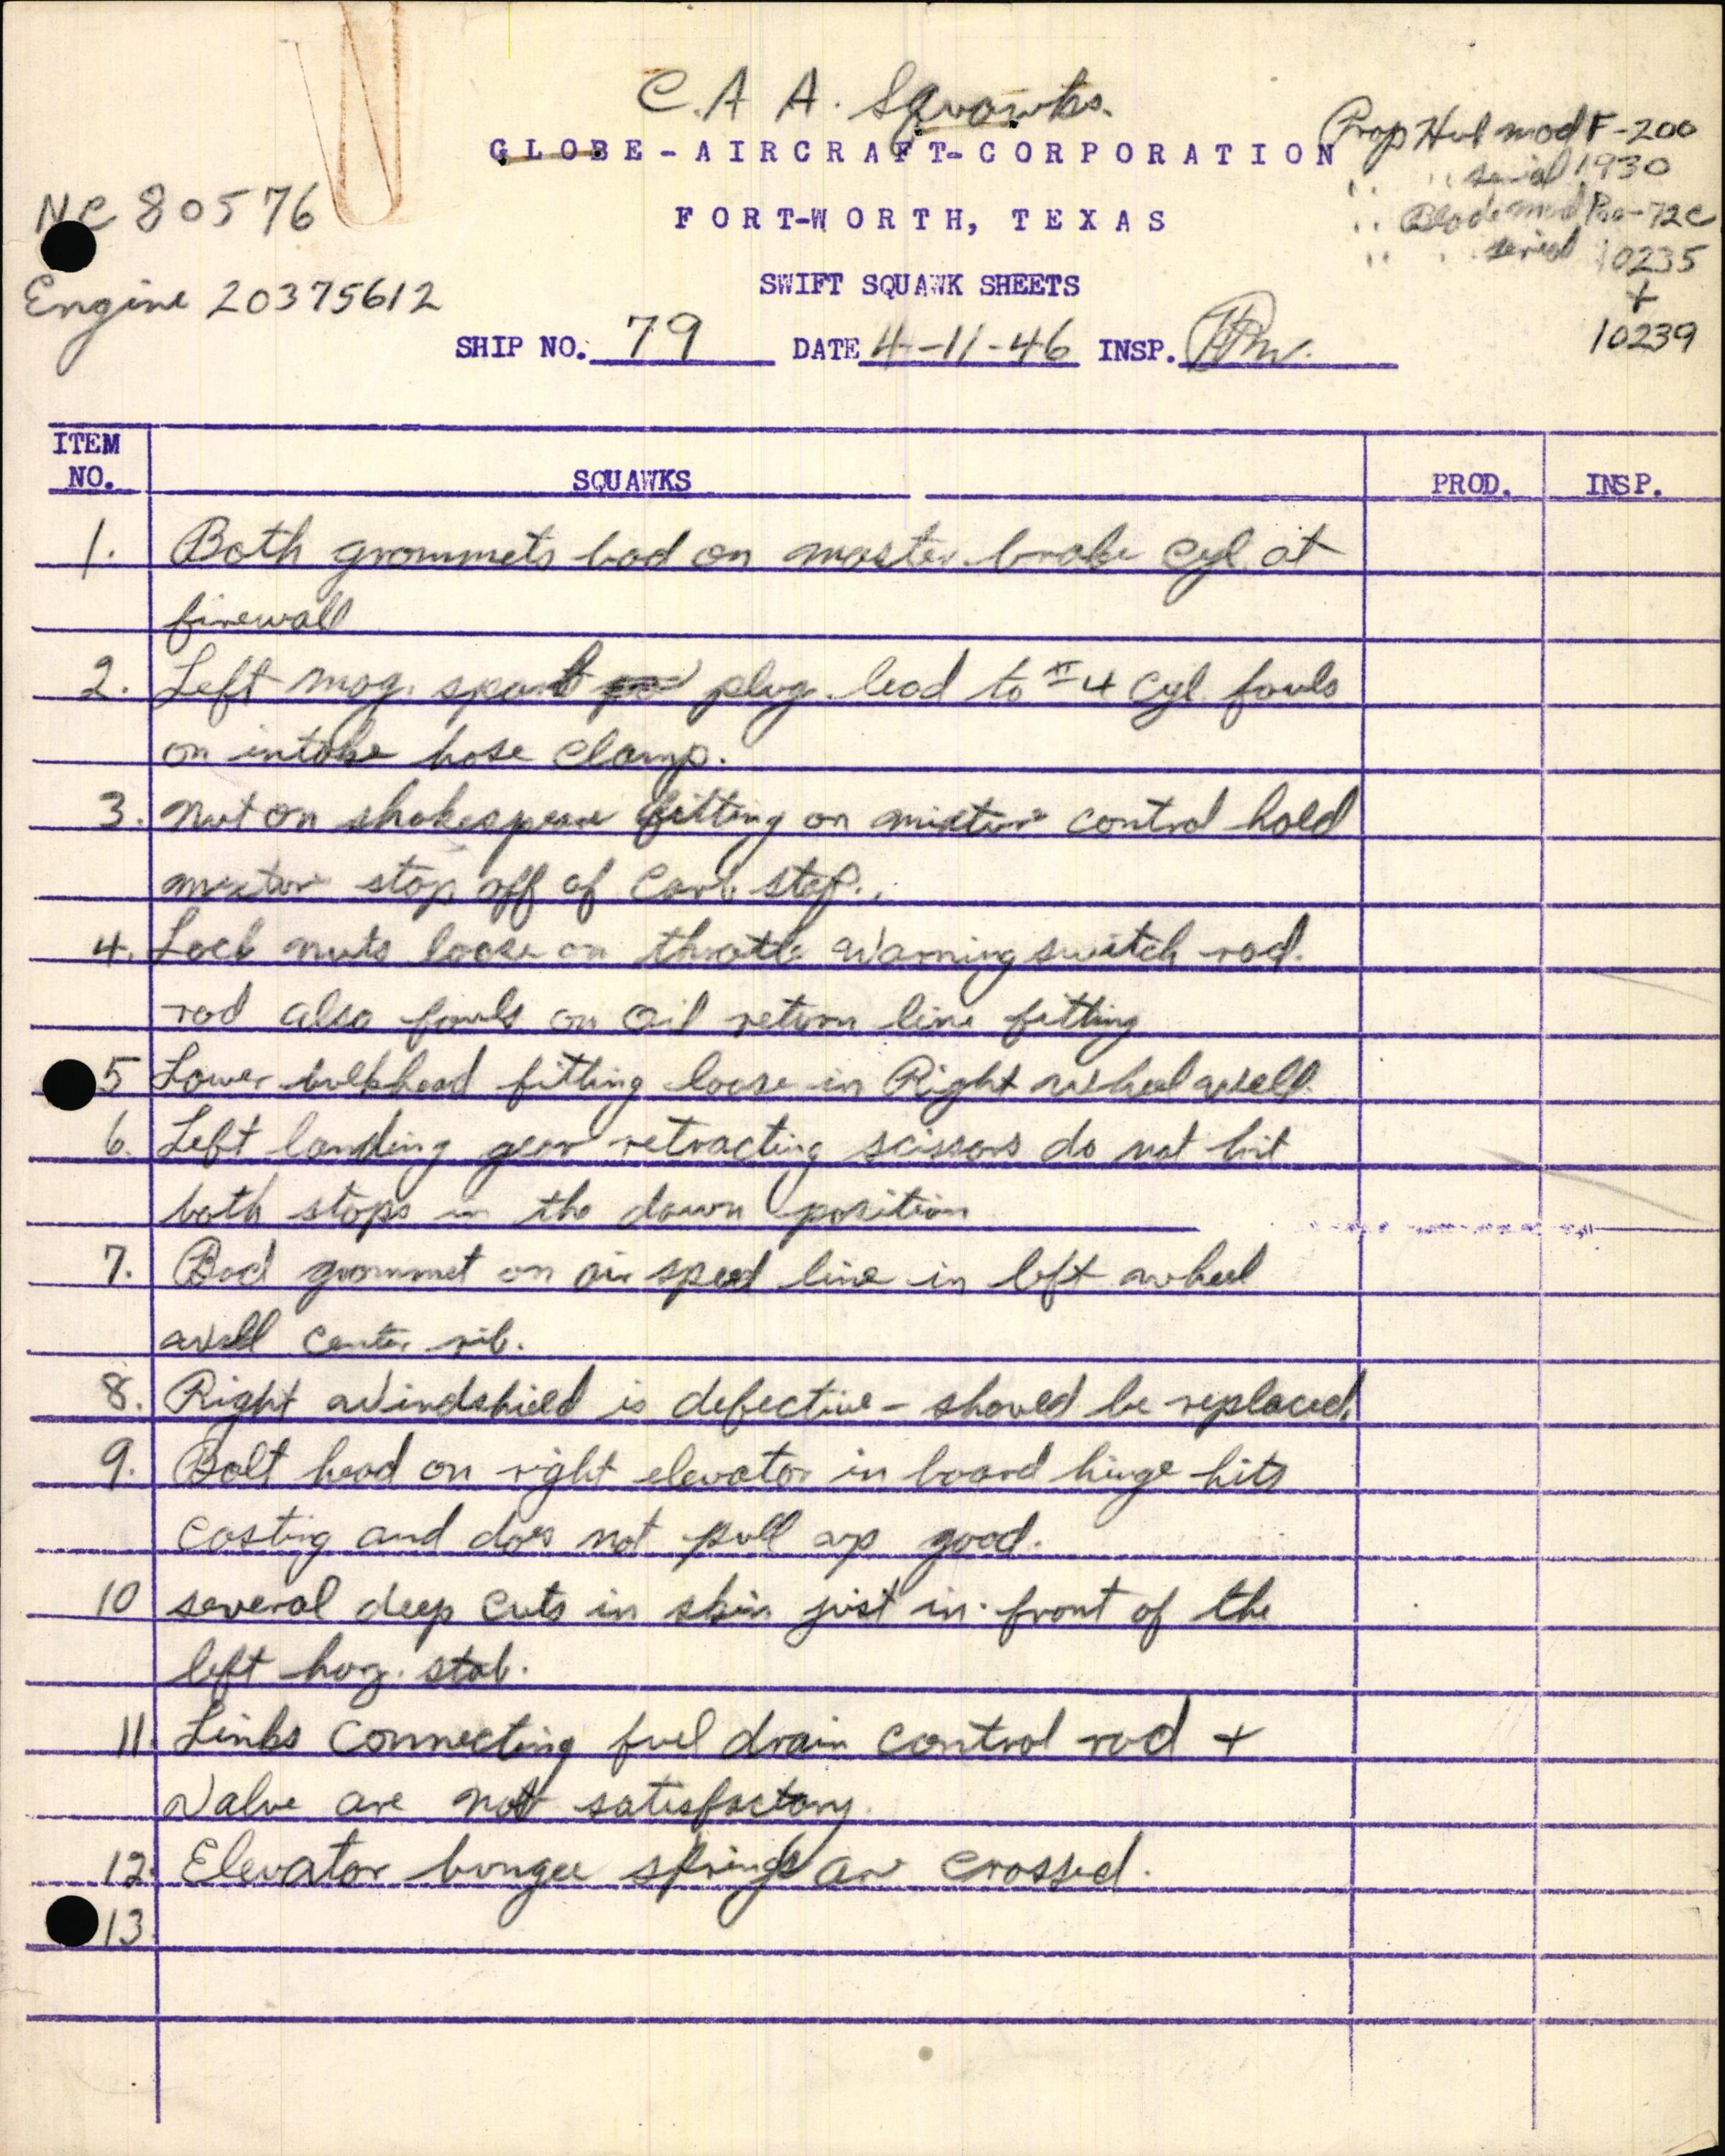 C.A A. Squawks.
GLOBE-AIRCRAFT-CORPORATION
Prop Hub mod F-200
" " serial 1930
" Blade mod 72C
" " serial 10235
+
10239
NC 80576
FORT-WORTH, TEXAS
Engine 20375612
SWIFT SQUAWK SHEETS
SHIP NO. 79 DATE 4-11-46 INSP.
ITEM NO. SQUAWKS PROD. INSP.
1. Both grommets bad on master brake cyl. at
firewall
2. Left mag. spark plug lead to #4 cyl. fouls
on intake hose clamp.
3. nut on shakespeare fitting on mixture control hold
mixtur stop off of carb stop.
4. Lock nuts loose on throttle warning switch rod.
rod also fouls on oil return line fitting
5 Lower bulkhead fitting loose in Right wheel well.
6. Left landing gear retracting scissors do not hit
both stops in the down position
7. Bad grommet on air speed line in left wheel
well center rib.
8. Right windshield is defective - should be replaced.
9. Bolt head on right elevator in board hinge hits
casting and does not pull up good.
10 several deep cuts in skin just in front of the
left horz. stab.
11. Links connecting fuel drain control rod +
valve are not satisfactory.
12. Elevator bungee springs are crossed.
13